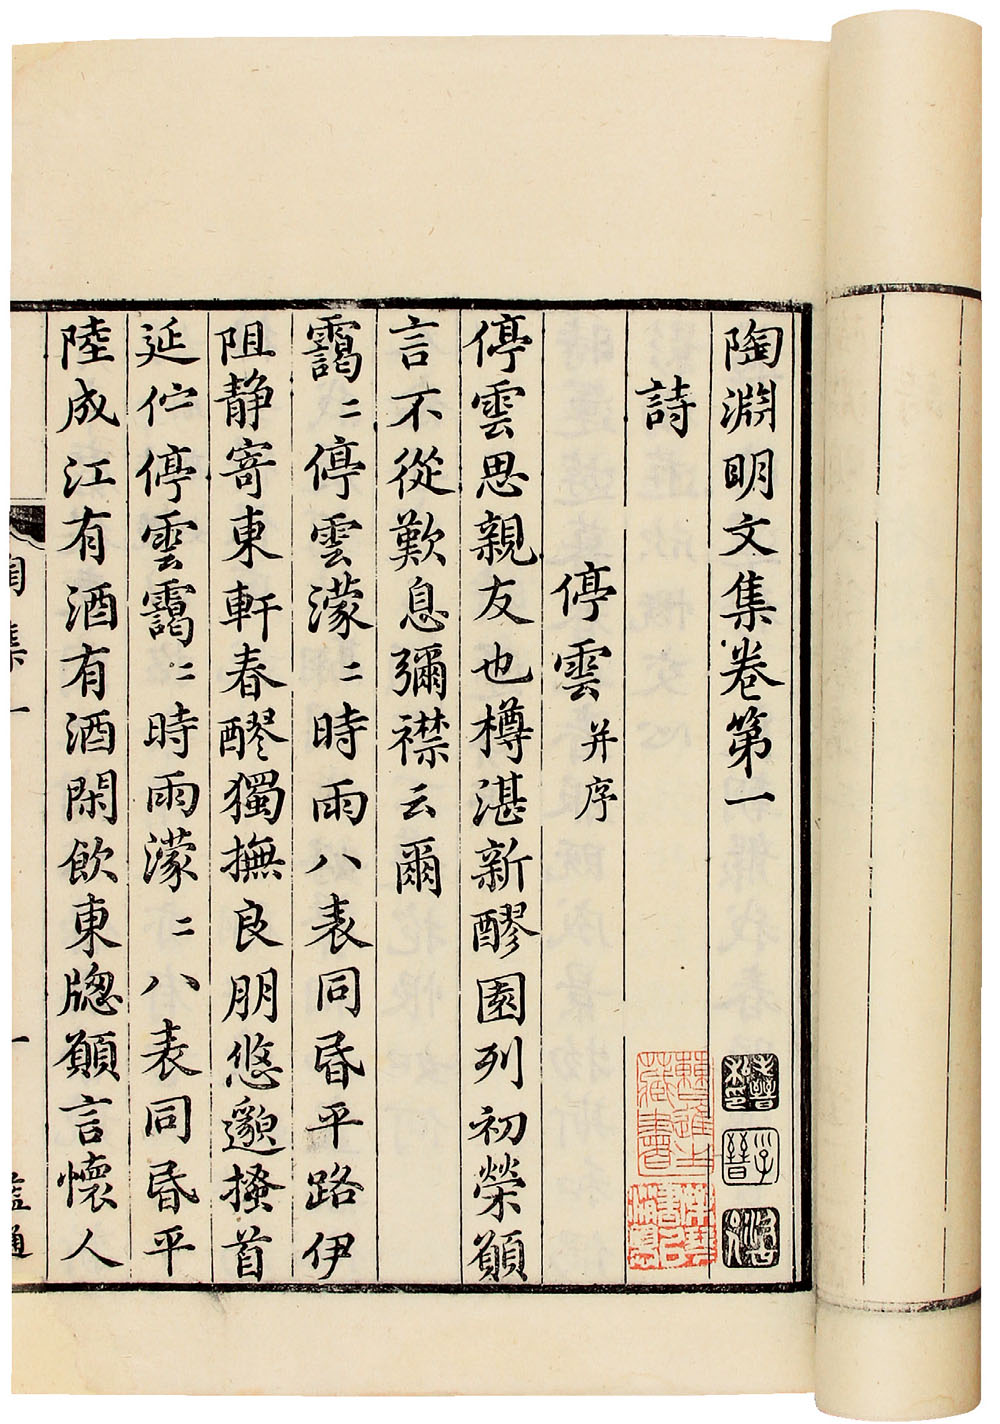 陶淵明文集卷第一
詩
停雲并序
停雲思親友也樽湛新醪園列初榮願
言不從歎息彌襟云爾
靄〻停雲濛〻時雨八表同昏平路伊
阻静寄東軒春醪獨撫良朋悠邈搔首
延佇停雲靄〻時雨濛〻八表同昏平
陸成江有酒有酒閑飲東牕願言懷人
陶集一
一